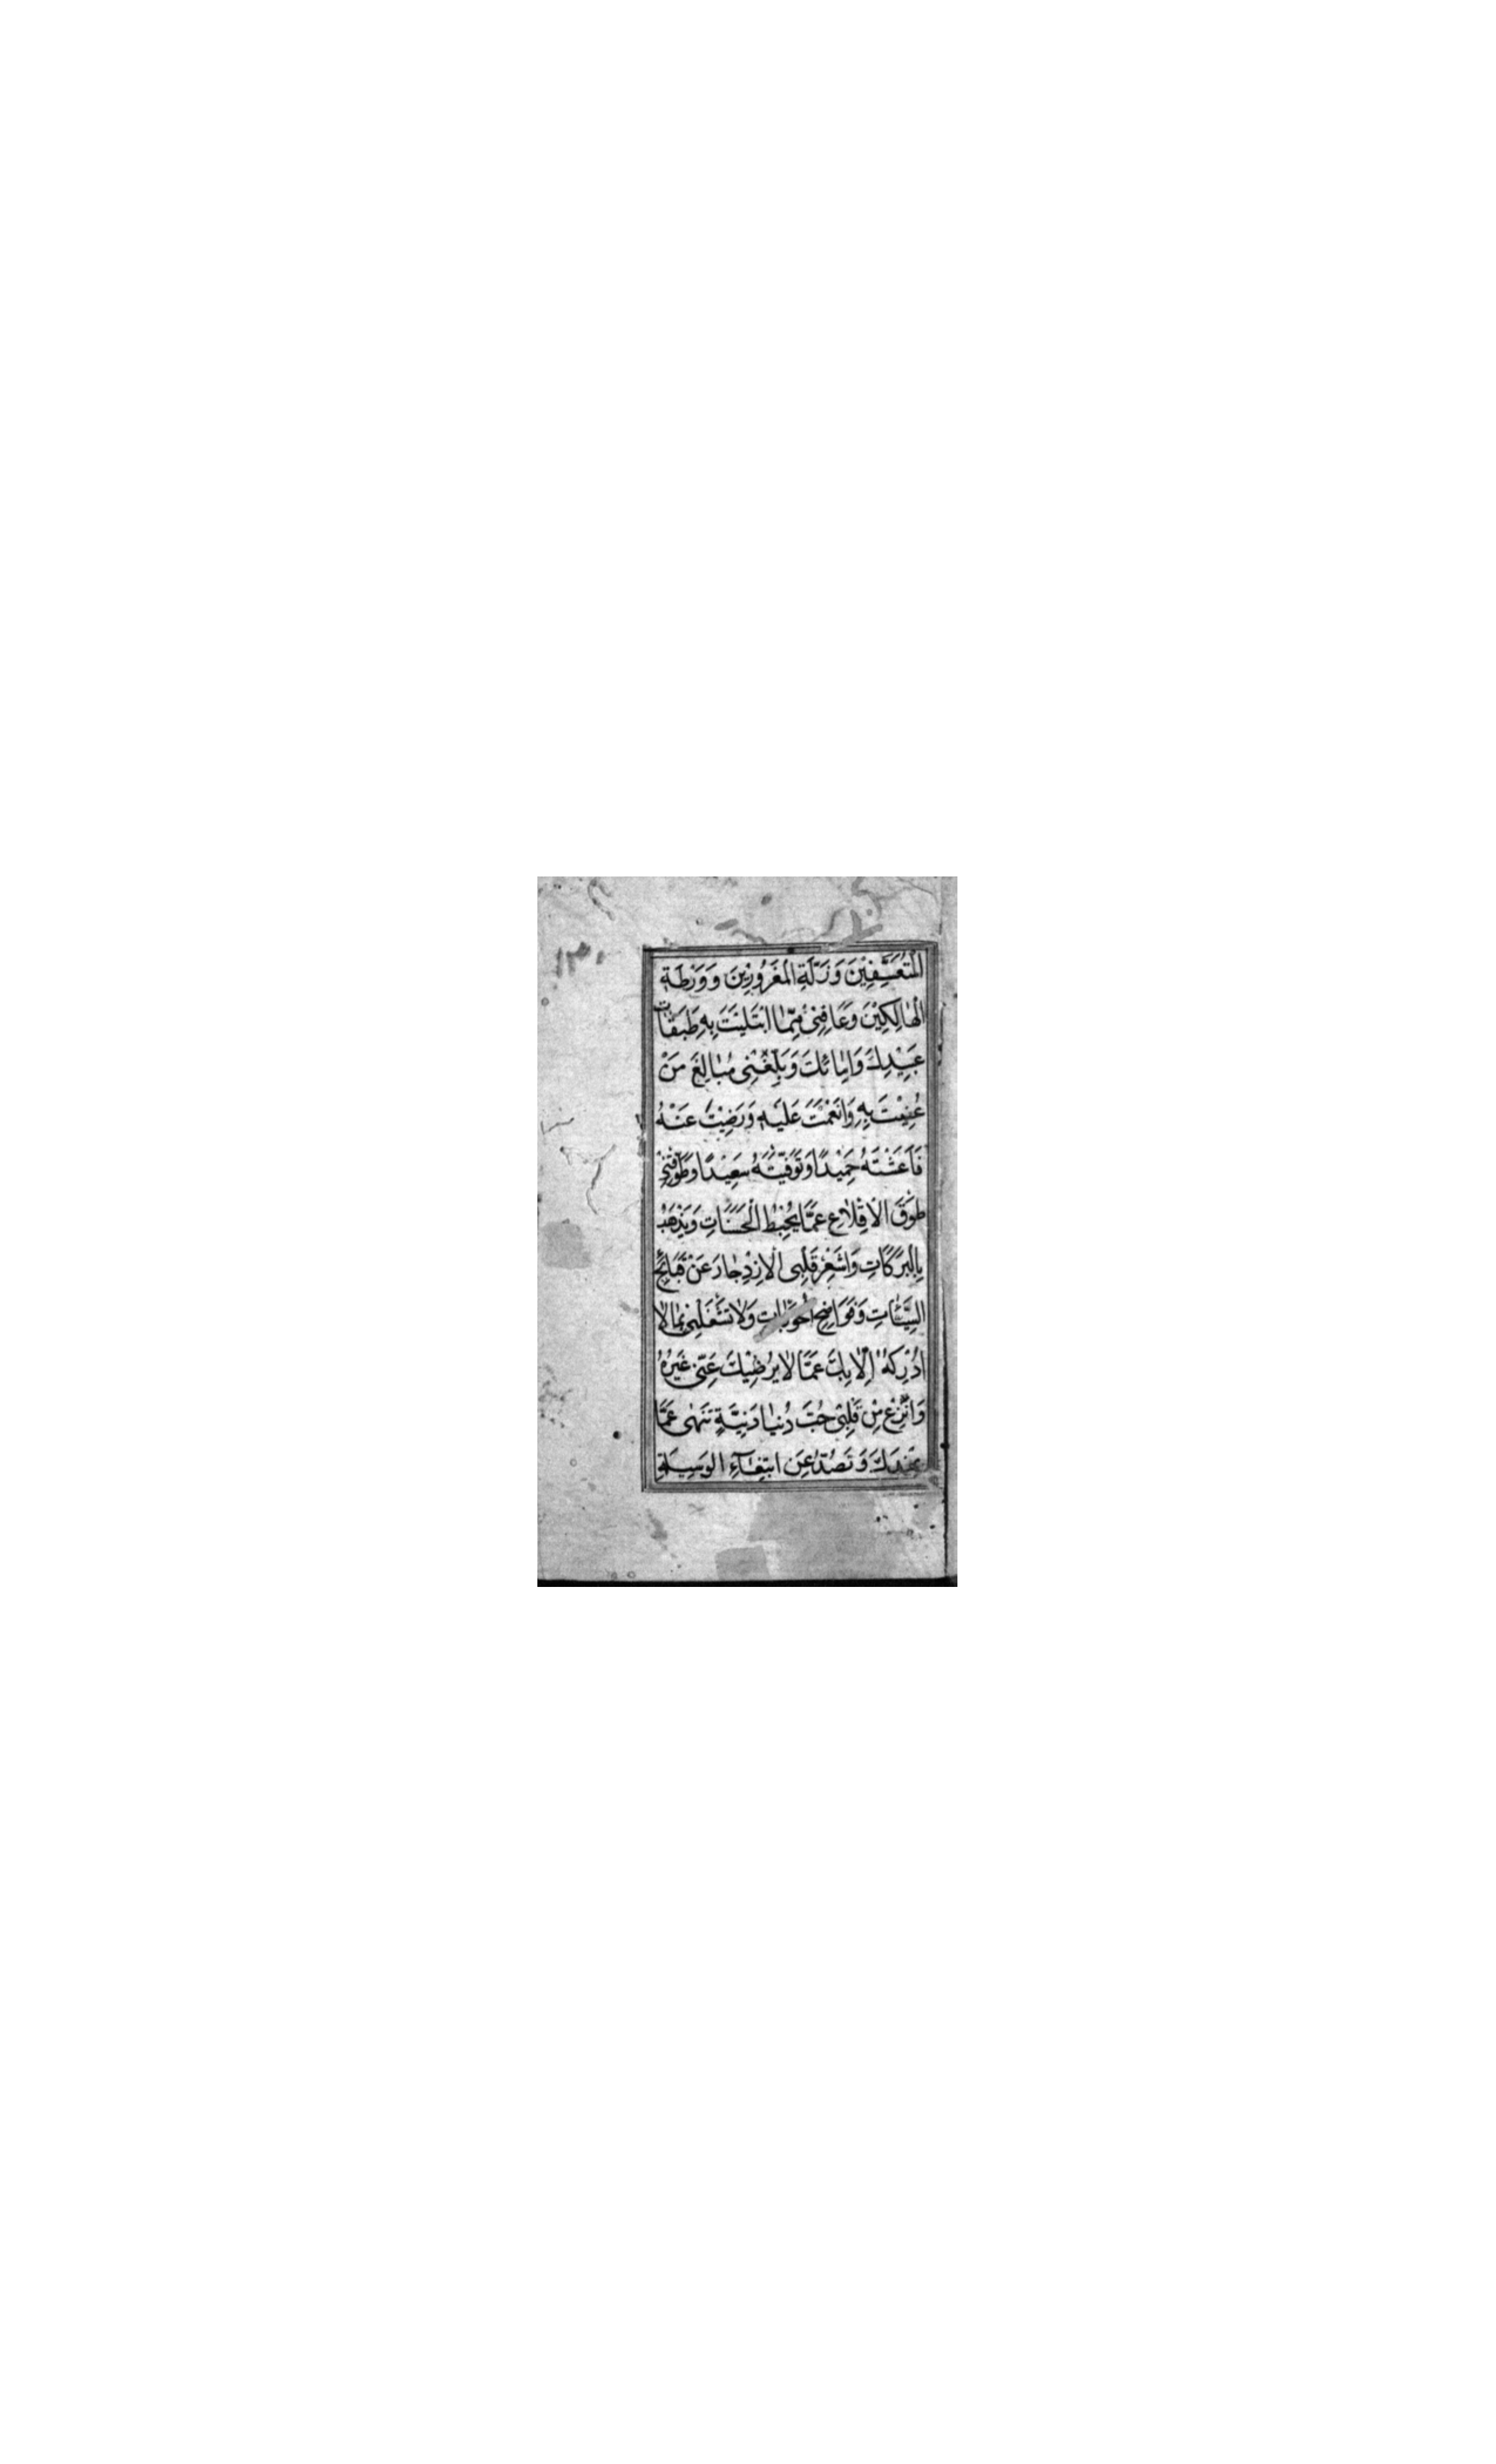 المُتَعَسِّفِيْنَ وَزَلَّةِ المَغْرُورِيْنَ وَوَرْطَةِ
الْهَالِكِيْنَ وَعَافِنِيْ مِمَّا ابْتَلَيْتَ بِهِ طَبَقَاتِ
عَبِيْدِكَ وَاِمَائِكَ وَبَلِّغْنِي مَبَالِغَ مَنْ
عُنِيْتَ بِهِ وَاَنْعَمْتَ عَلَيْهِ وَرَضِيْتَ عَنْهُ
فَاَعَشْتَهُ حَمِيْدًا وَتَوَفَّيْتَهُ سَعِيْدًا وَطَوِّقْنِيْ
طَوْقَ الْاِقْلَاعِ عَمَّا يُحْبِطُ الْحَسَنَاتِ وَيَذْهَبُ
بِالْبَرَكَاتِ وَاَشْعِرْ قَلْبِي الْاِزْدِجَارَ عَنْ قَبَائِحِ
السَّيِّئَاتِ وَفَوَاضِحِ الْحَوْبَاتِ وَلَا تَشْغَلْنِيْ بِمَا لَا
اُدْرِكُهُ اِلَّا بِكَ عَمَّا لَا يُرْضِيْكَ عَنِّيْ غَيْرُهُ
وَانْزِعْ مِنْ قَلْبِيْ حُبَّ دُنْيَا دَنِيَّةٍ تَنْهٰى عَمَّا
عِنْدَكَ وَتَصُدُّ عَنِ ابْتِغَاءِ الْوَسِيْلَةِ